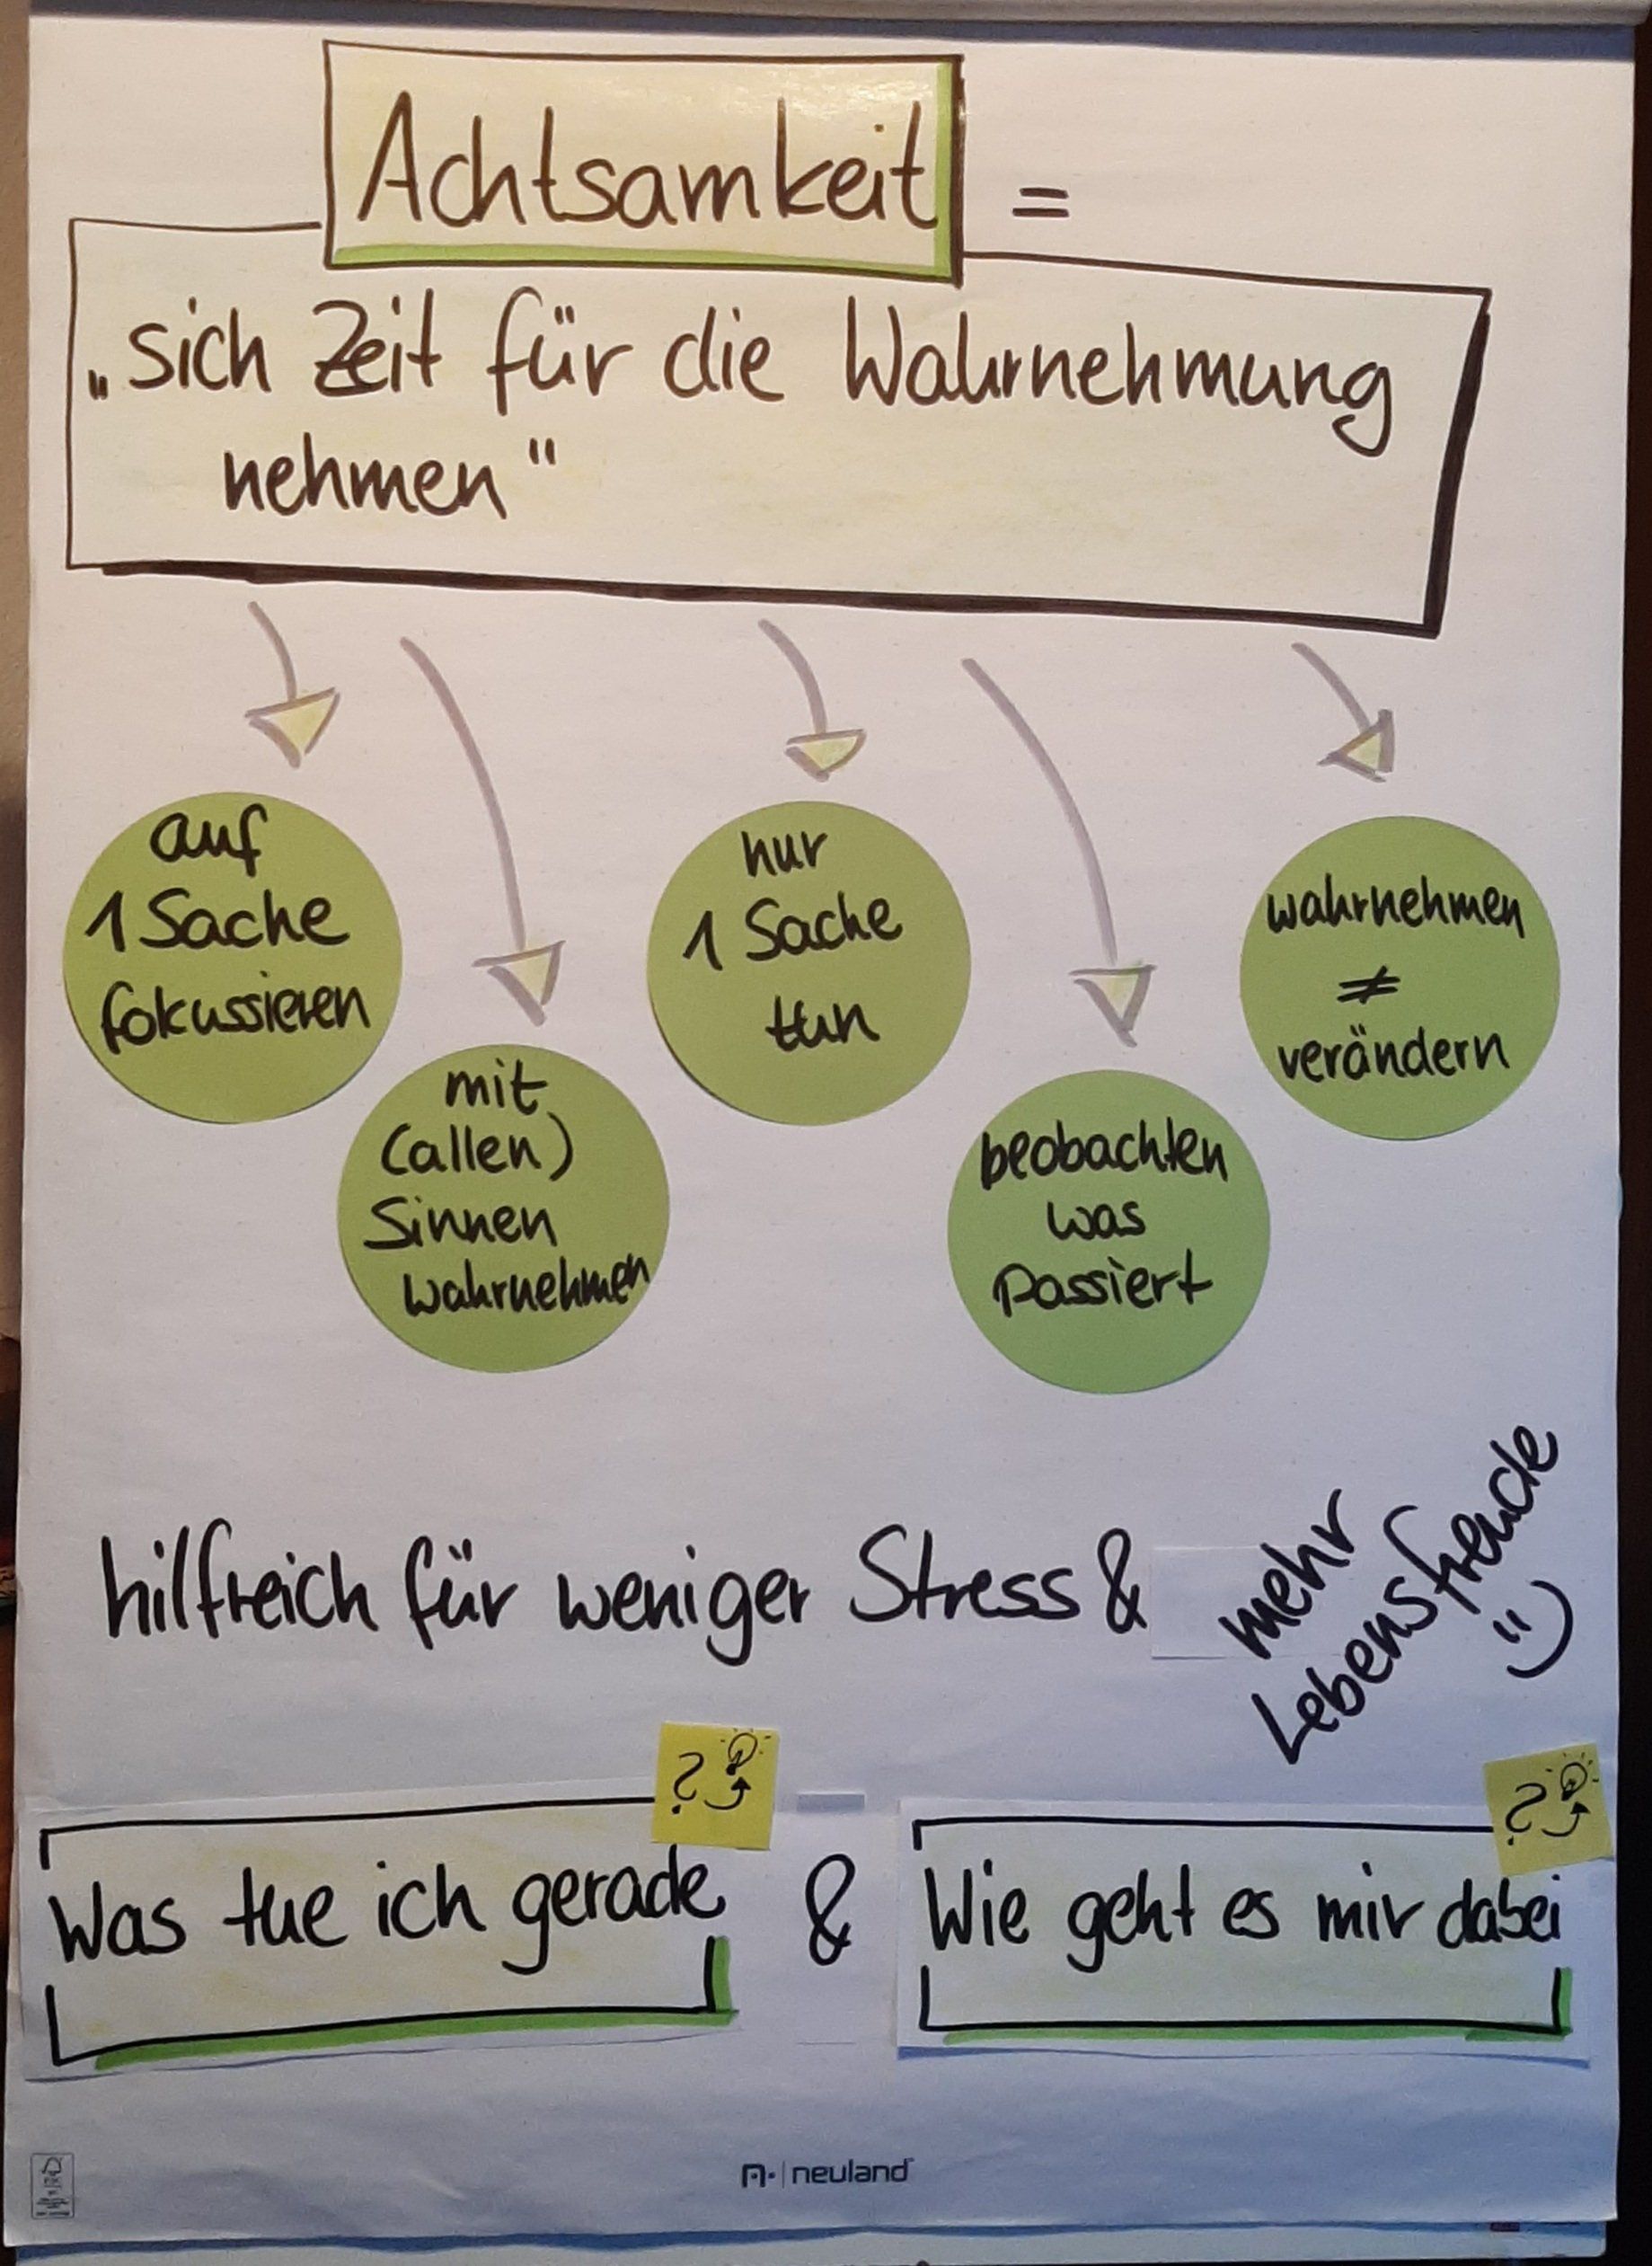 Achtsamkeit =
„sich Zeit für die Wahrnehmung
nehmen“
auf
1 Sache
fokussieren
mit
(allen)
Sinnen
wahrnehmen
nur
1 Sache
tun
beobachten
was
passiert
wahrnehmen
≠
verändern
hilfreich für weniger Stress &
mehr
Lebensfreude
:)
?
?
Was tue ich gerade & Wie geht es mir dabei
neuland